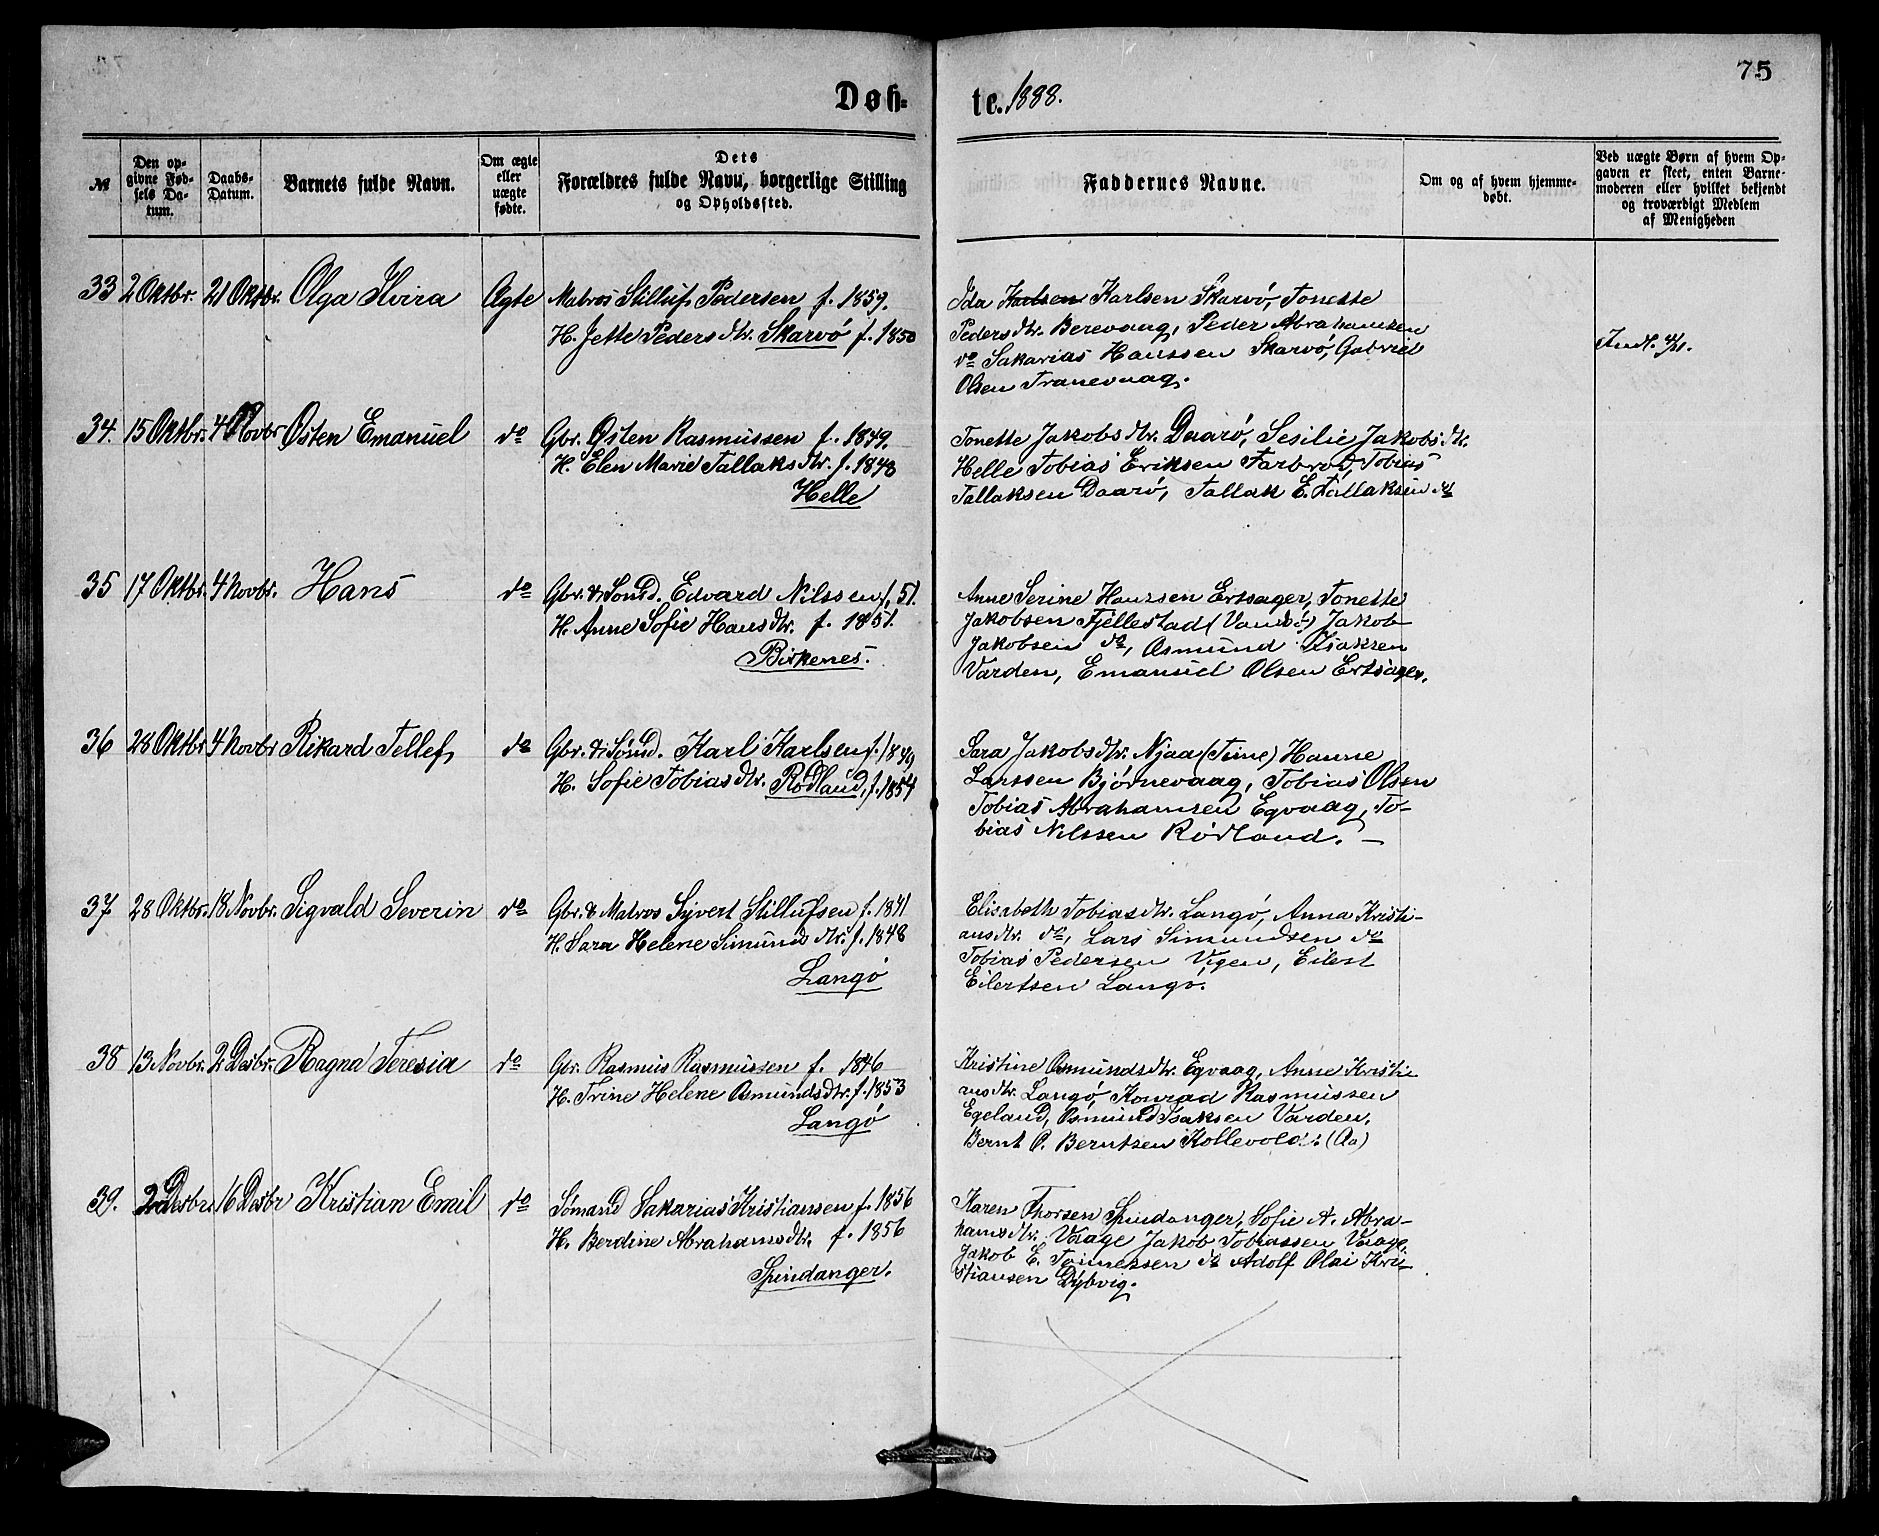 75
Døb=
te. 1888.
№
Den op-
givne Fød-
sels Da-
tum.
Daabs-
Datum.
Barnets fulde Navn.
Om ægte
eller
uægte
fødte.
Dets
Forældres fulde Navn, borgerlige Stilling
og Opholdssted.
Faddernes Navne.
Om og af hvem hjemme-
døbt.
Ved uægte Børn af hvem Op-
gaven er skeet, enten Barne-
moderen eller hvilket bekjendt
og troværdigt Medlem
af Menigheden
33 2 Oktbr. 21 Oktbr. Olga Elvira Ægte
Matros Stilluf Pedersen f. 1859.
H. Jette Pedersdtr. Skarvö f. 1850
Ida Karlsen Karlsen Skarvö, Tonette
Pedersdtr. Berevaag, Peder Abrahamsen
do Sakarias Hanssen Skarvö, Gabriel
Olsen Tranevaag.
34. 15 Oktbr. 4 Novbr Østen Emanuel do
Gbr. Østen Rasmussen f. 1849.
H. Elen Marie Tallaksdtr. f. 1848
Helle
Tonette Jakobsdtr. Daarö, Sesilie Jakobsdtr.
Helle Tobias Eriksen Farbrot, Tobias
Tallaksen Daarö, Tallak E. Tallaksen do
35 17 Oktbr. 4 Novbr. Hans do
Gbr. & Sømd. Edvard Nilssen f. 51.
H. Anne Sofie Hansdtr. f. 1851.
Birkenes.
Anne Serine Hanssen Ertsager, Tonette
Jakobsen Fjellestad (Vansö) Jakob
Jakobsen do, Osmund Isaksen
Varden, Emanuel Olsen Ertsager.
36 28 Oktbr 4 Novbr Rikard Tellef do
Gbr. & Sømd. Karl Karlsen f. 1849
H. Sofie Tobiasdtr. Rødland, f. 1854
Sara Jakobsdtr. Njaa (Time) Hanne
Larssen Bjørnevaag, Tobias Olsen
Tobias Abrahamsen Egvaag, To-
bias Nilssen Rødland. —
37 28 Oktbr. 18 Novbr. Sigvald Severin do
Gbr. & Matros Syvert Stillufsen f. 1841
H. Sara Helene Simunds dtr. f. 1848
Langö
Elisabeth Tobiasdtr. Langö, Anna Kristi-
ansdtr. do, Lars Simundsen do
Tobias Pedersen Vigen, Eilert
Eilertsen Langö.
38 13 Novbr. 2 Desbr. Ragna Teresia do
Gbr. Rasmus Rasmussen f. 1846
H. Trine Helene Osmundsdtr. f. 1853
Langö
Kristine Osmundsdtr. Egvaag, Anne Kristi-
ansdtr. Langö, Konrad Rasmussen
Egeland, Osmund Isaksen Varden.
Bernt O. Berntsen Kollevold. (Aa)
39. 2 Desbr. 16 Desbr Kristian Emil do
Sømand Sakarias Kristiansen f. 1856
H. Berdine Abrahamsdtr. f. 1856
Spindanger.
Karen Thorsen Spindanger, Sofie A. Abra-
hamsdtr. Vaage Jakob Tobiassen Vaage.
Jakob E. Tønnessen do Adolf Olai Kri-
stiansen Dybvig.